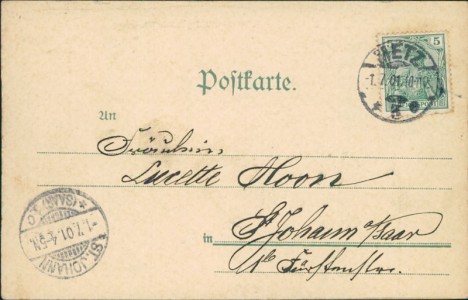 5
METZ
-1.7.01.10-11
Postkarte.
An
Fräulein
Lucette Hoon
in St Johann Saar
Fürstenstr.
ST. JOHANN
-1.7.01.4-5N.
(SAAR)